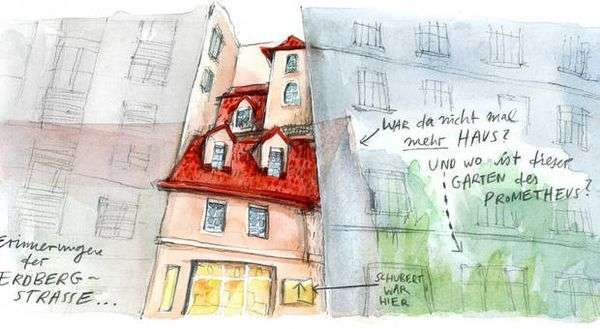 WAR da nicht mal
mehr HAUS?
UND wo ist dieser
GARTEN des
PROMETHEUS?
Erinnerungen
der
ERDBERG-
STRASSE...
SCHUBERT
WAR
HIER